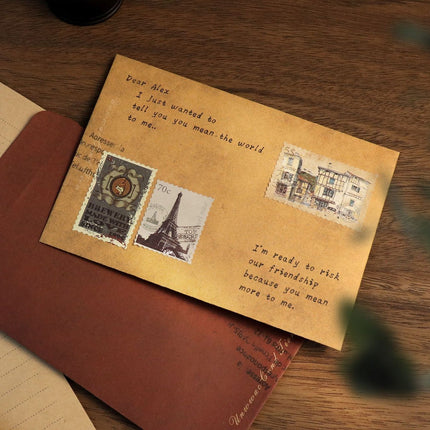 Dear Alex
I just wanted to
tell you you mean the world
to me..
70c
BREWERY
MADE WITH
I'm ready to risk
our friendship
because you mean
more to me.